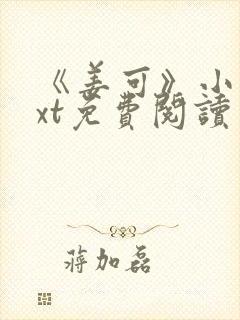 《姜可》小
xt免費閱讀
蔣加磊